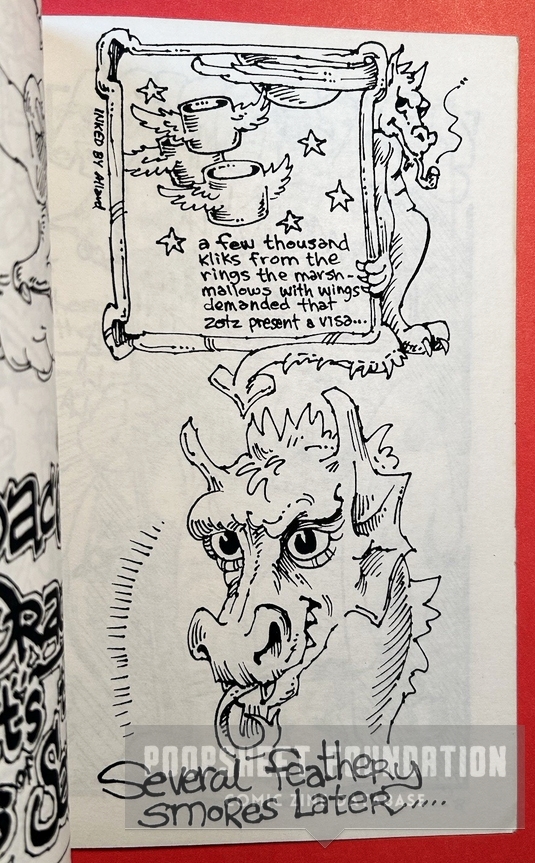 INKED BY
a few thousand
kliks from the
rings the marsh-
mallows with wings
demanded that
zotz present a visa...
Several feathery
smokes Later....
POOPSHEET FOUNDATION
COMIC ZINE DATABASE